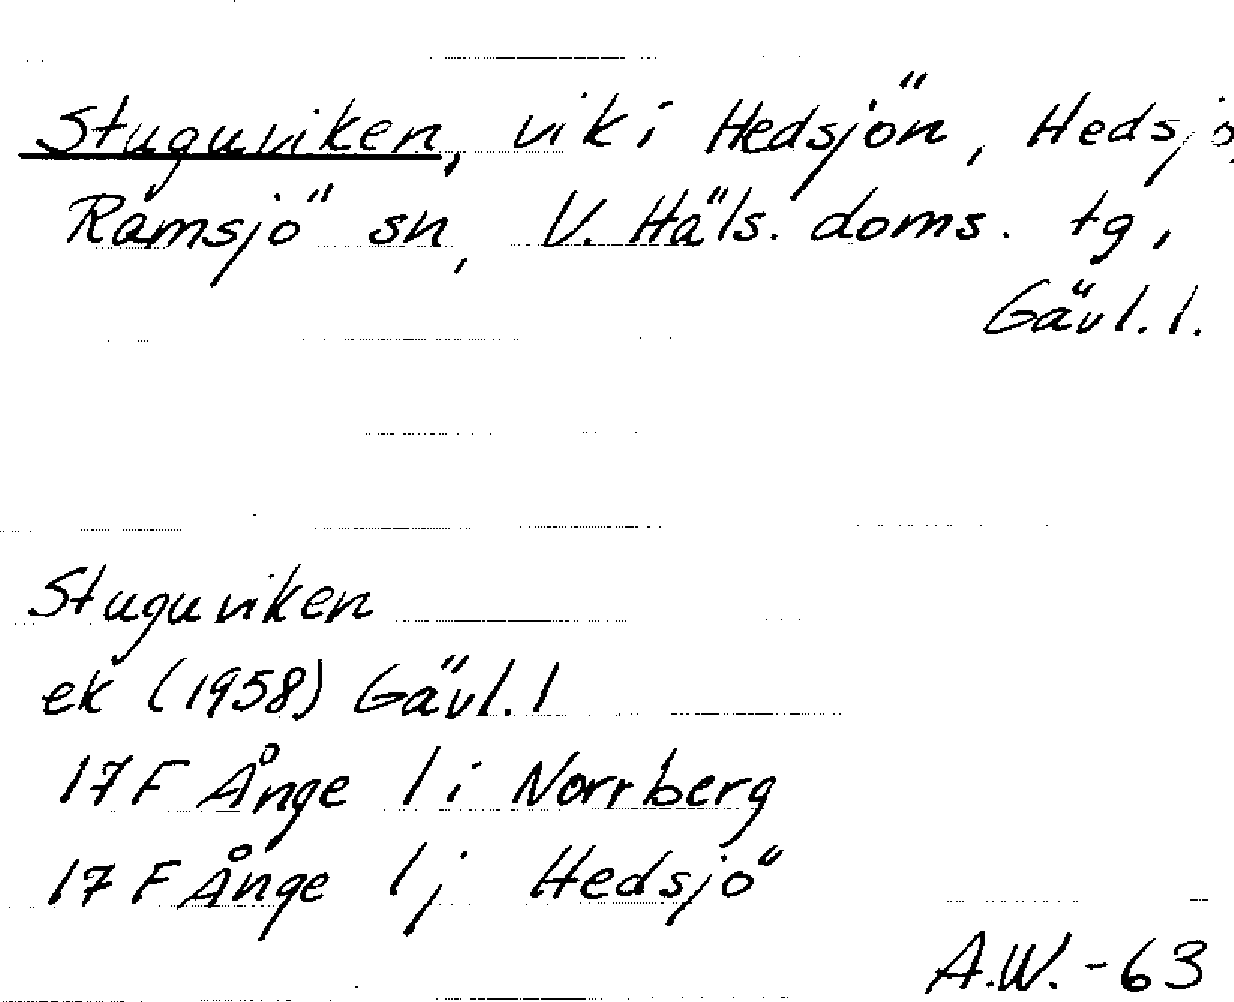 Stuguviken, vik i Hedsjön, Hedsjö,
Ramsjö sn, V. Häls. doms. tg,
Gävl. l.
Stuguviken
ek (1958) Gävl. l
17 F Ånge 1 i Norrberg
17 F Ånge 1 j Hedsjö
A.W. - 63